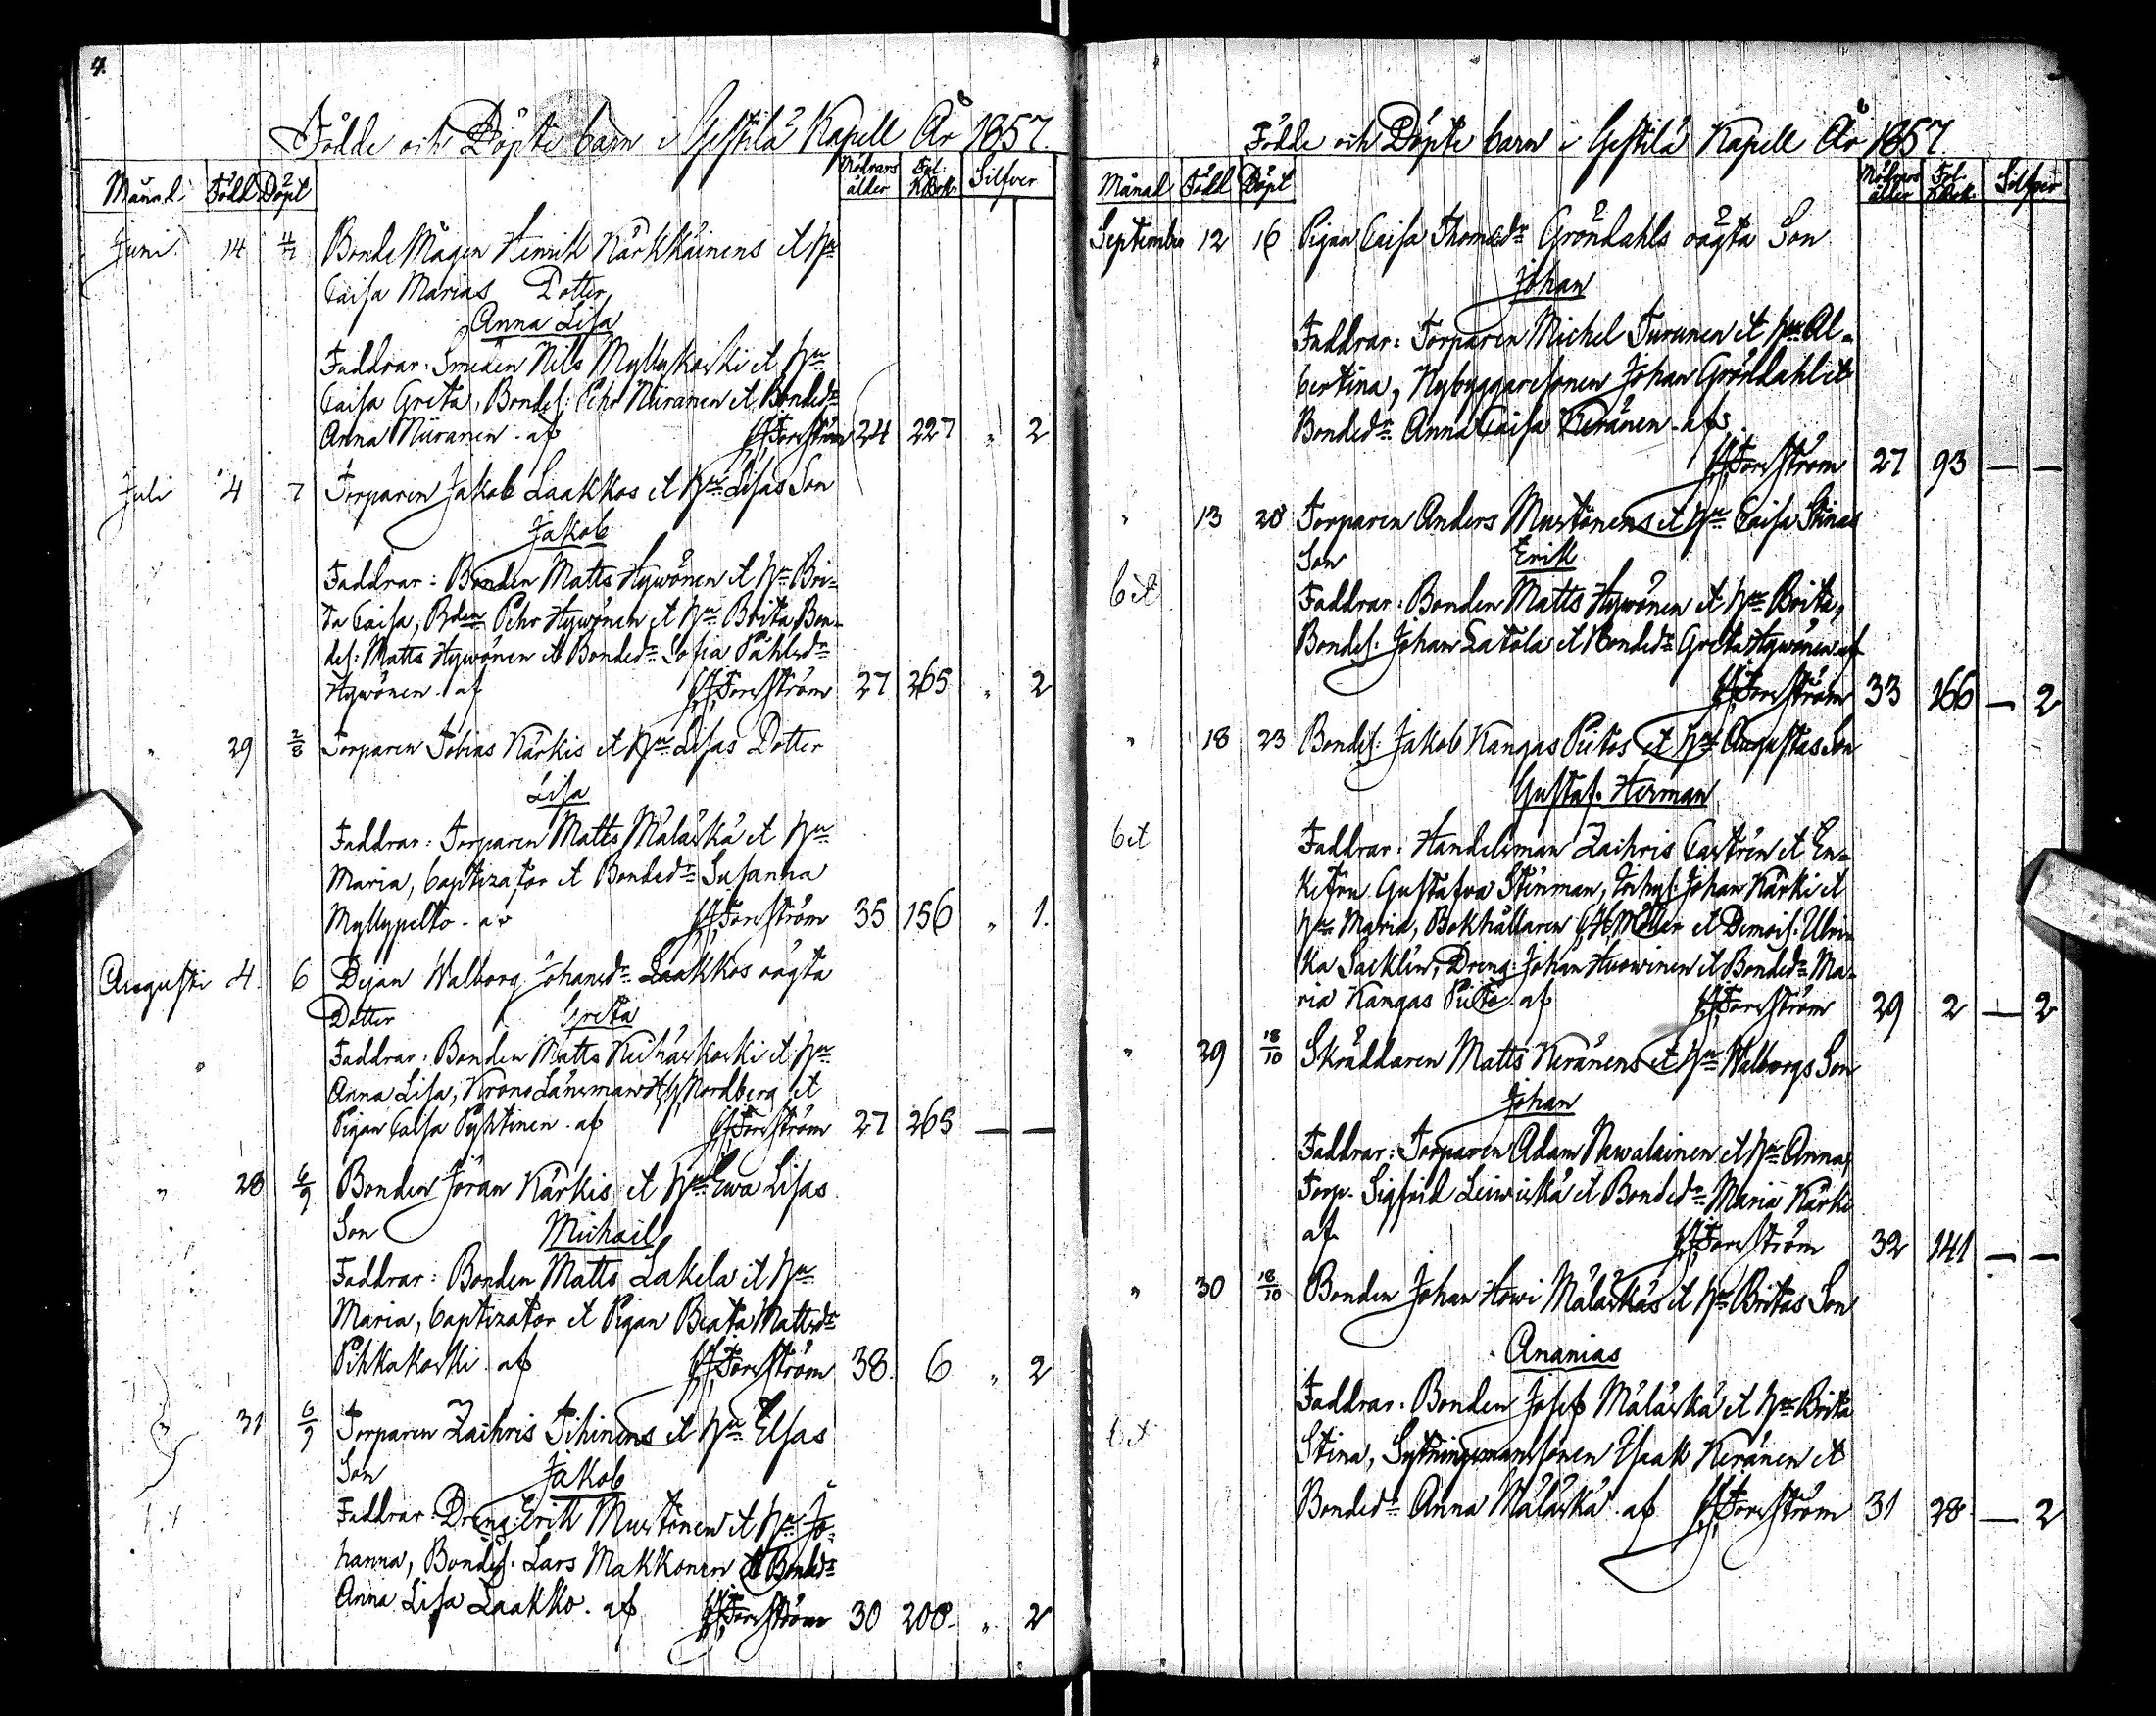 4.
Födde och Döpte barn i Gestilä Kapell År 1857.
Månad. Född Döpt Mödrars ålder Fol. K.Bok. Silfver
Juni. 14 4/7 Bonde Mågen Henrik Kärkkäinens et Hu
Caisa Marias Dotter
Anna Lisa
Faddrar: Smeden Nils Myllykoski et Hu
Caisa Greta, Bondes. Pehr Niiranen et Bondedr
Anna Niiranen. af Forsström 24 227 " 2
Juli 4 7 Torparen Jakob Laakkos et Hu Lisas Son
Jakob
Faddrar: Bonden Matts Hywönen et Hu Bri-
ta Caisa, Bden Pehr Hywönen et Hu Brita, Bon-
des. Matts Hywönen et Bondedr Sofia Påhlsdr
Hywönen. af Forsström 27 265 " 2
" 29 2/8 Torparen Tobias Kärkis et Hu Lisas Dotter
Lisa
Faddrar: Torparen Matts Mäläskä et Hu
Maria, baptizator et Bondedr Susanna
Myllypelto. af Forsström 35 156 " 1.
Augusti 4. 6 Pigan Walborg Johansdr Laakkos oägta
Dotter Greta
Faddrar: Bonden Matts Keihäskoski et Hu
Anna Lisa, Krono Länsman Nordberg et
Pigan Caisa Pyhtinen. af Forsström 27 265 — —
" 28 6/9 Bonden Jöran Kärkis et Hu Ewa Lisas
Son Michail
Faddrar: Bonden Matts Lakela et Hu
Maria, baptizator et Pigan Beata Mattsdr
Pihkakoski. af Forsström 38. 6 " 2
31 6/9 Torparen Zachris Tihinens et Hu Elsas
Son Jakob
Faddrar: Dreng. Erik Mustonen et Hu Jo-
hanna, Bondes. Lars Makkonen et Bondedr
Anna Lisa Laakko. af Forsström 30 208. " 2
Födde och Döpte barn i Gestilä Kapell År 1857.
Månad Född Döpt Mödrars ålder Fol. K.Bok. Silfver
September 12 16 Pigan Caisa Thomasdr Gröndahls oägta Son
Johan
Faddrar: Torparen Michel Turunen et Hu Al-
bertina, Nybyggaresonen Johan Gröndahl et
Bondedr Anna Caisa Keränen. af
Forsström 27 93 — —
" 13 20 Torparen Anders Mustonens et Hu Caisa Stinas
Son Erik
Faddrar: Bonden Matts Hywönen et Hu Brita,
Bondes. Johan Latola et Bondedr Greta Hywönen af
Forsström 33 166 — 2
" 18 23 Bondes. Jakob Kangas Piitos et Hu Augustas Son
Gustaf Herman
Faddrar: Handelsman Zachris Castrén et En-
kefru Gustafva Stenman, Inhys. Johan Kärki et
Hu Maria, Bokhållaren Möller et Demois. Ulri-
ka Sacklin, Dreng: Johan Huowinen et Bondedr Ma-
ria Kangas Piito. af Forsström 29 2 — 2
" 29 18/10 Skräddaren Matts Keränens et Hu Walborgs Son
Johan
Faddrar: Torparen Adam Newalainen et Hu Anna,
Torp. Sigfrid Leiwiskä et Bondedr Maria Kärki
af. Forsström 32 141 — —
" 30 18/10 Bonden Johan Howi Mäläskäs et Hu Britas Son
Ananias
Faddrar: Bonden Josef Mäläskä et Hu Brita
Stina, Sytningsmanssonen Isaak Keränen et
Bondedr Anna Mäläskä. af Forsström 31 28 — 2